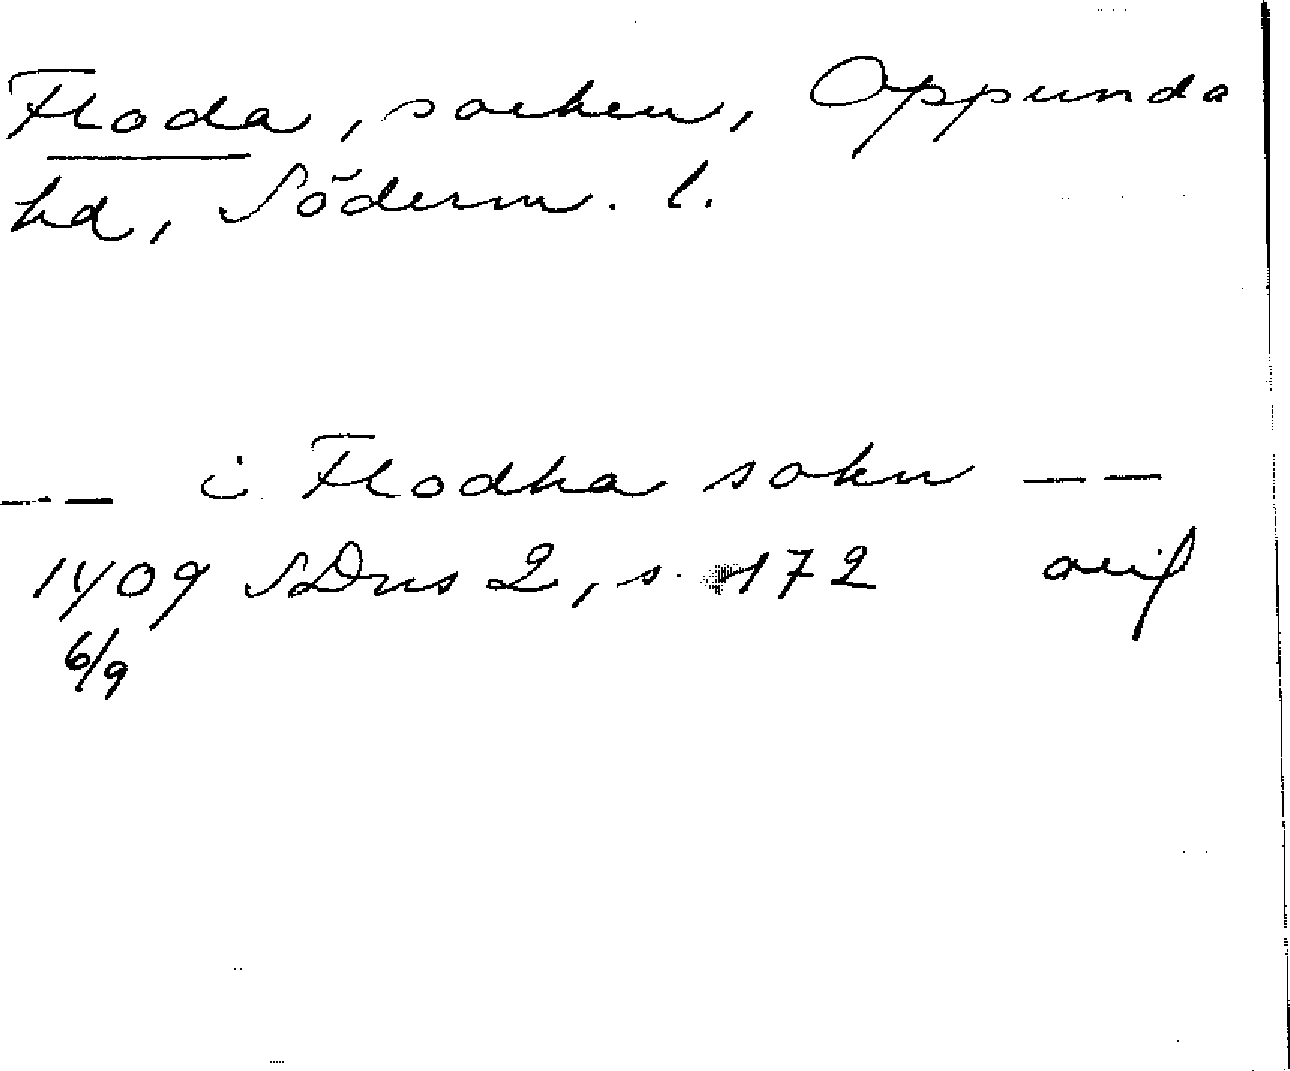 Floda, socken, Oppunda
hd, Söderm. l.
--- i Flodha sokn --
1409 SDns 2, s. 172 avif
6/9